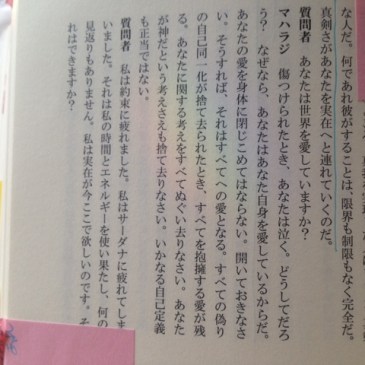 な人だ。何であれ彼がすることは、限界も制限もなく完全だ。
真剣さがあなたを実在へと連れていくのだ。
質問者　あなたは世界を愛していますか？
マハラジ　傷つけられたとき、あなたは泣く。どうしてだろ
う？　なぜなら、あなたはあなた自身を愛しているからだ。
あなたの愛を身体に閉じこめてはならない。開いておきなさ
い。そうすれば、それはすべてへの愛となる。すべての偽り
の自己同一化が捨て去られたとき、すべてを抱擁する愛が残
る。あなたに関する考えをすべてぬぐい去りなさい。あなた
が神だという考えさえも捨て去りなさい。いかなる自己定義
も正当ではない。
質問者　私は約束に疲れました。私はサーダナに疲れてしま
いました。それは私の時間とエネルギーを使い果たし、何の
見返りもありません。私は実在が今ここで欲しいのです。そ
れはできますか？